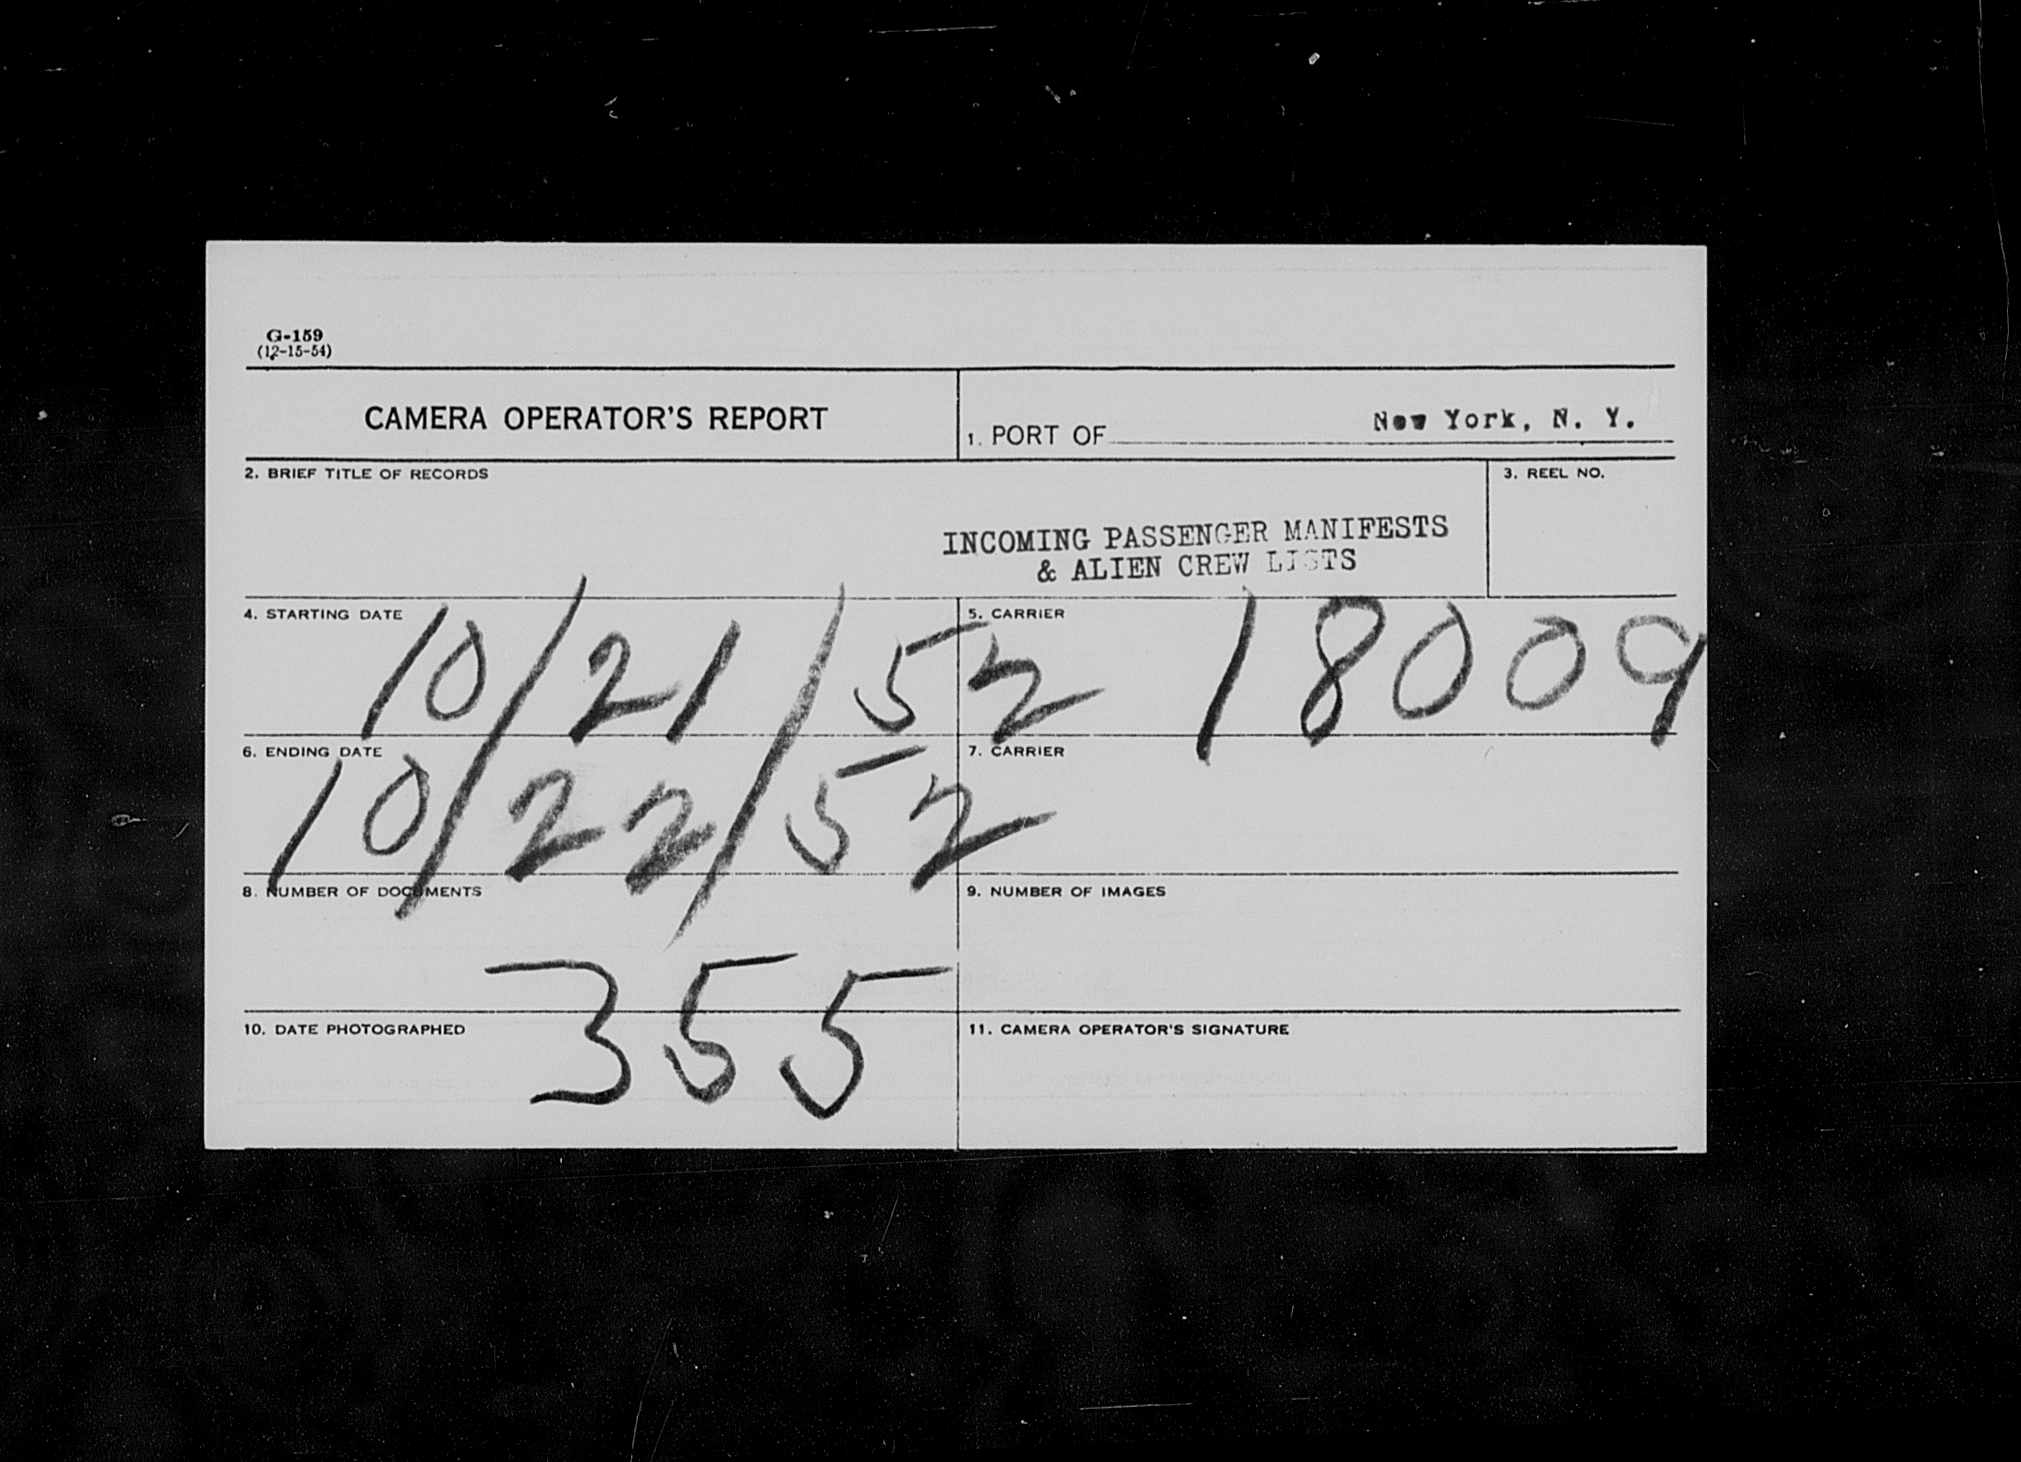 G-159
(12-15-54)
CAMERA OPERATOR'S REPORT
1. PORT OF New York, N. Y.
2. BRIEF TITLE OF RECORDS
INCOMING PASSENGER MANIFESTS
& ALIEN CREW LISTS
3. REEL NO.
4. STARTING DATE
10/21/52
5. CARRIER
18009
6. ENDING DATE
10/22/52
7. CARRIER
8. NUMBER OF DOCUMENTS
355
9. NUMBER OF IMAGES
10. DATE PHOTOGRAPHED
11. CAMERA OPERATOR'S SIGNATURE